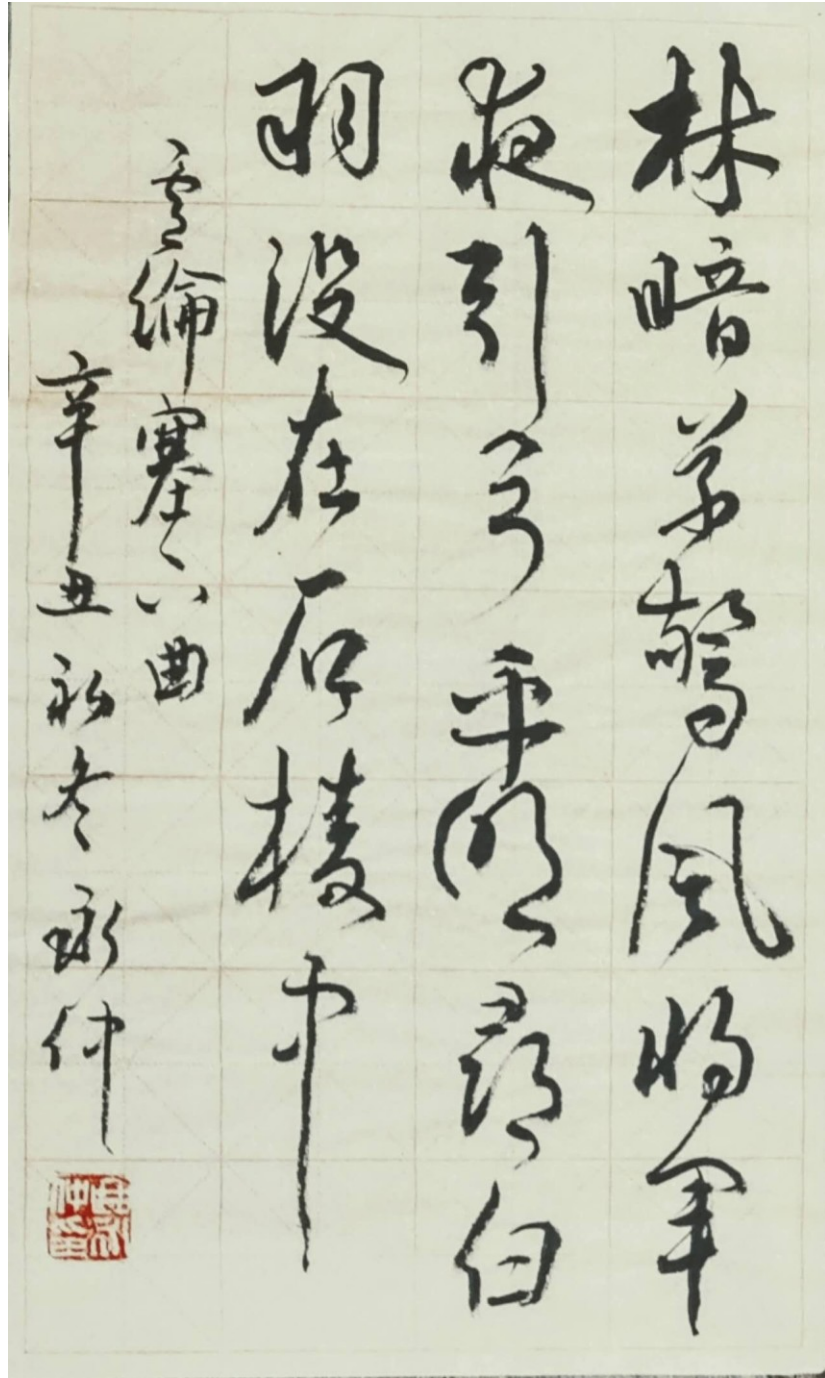 林暗草驚風將軍
夜引弓平明尋白
羽没在石棱中
盧綸塞下曲
辛丑初冬永仲